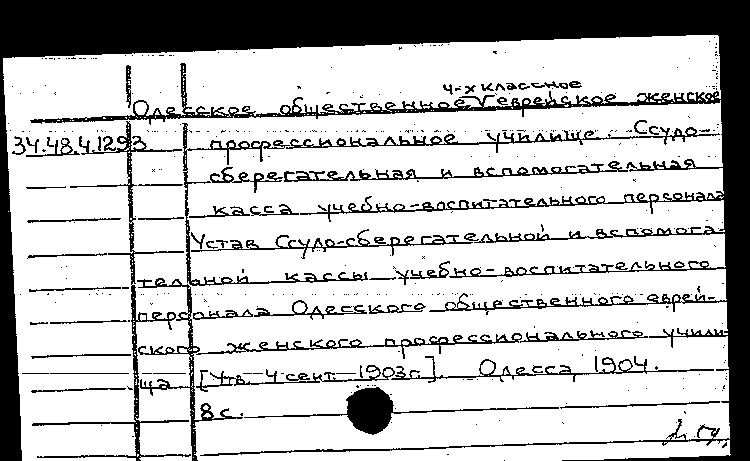 4-х классное
Одесское общественное V еврейское женское
34.48.4.1293 профессиональное училище. Ссудо-
сберегательная и вспомогательная
касса учебно-воспитательного персонала
Устав Ссудо-сберегательной и вспомога-
тельной кассы учебно-воспитательного
персонала Одесского общественного еврей-
ского женского профессионального учили
ща [Утв. 4 сент. 1903г.]. Одесса, 1904.
8 с.